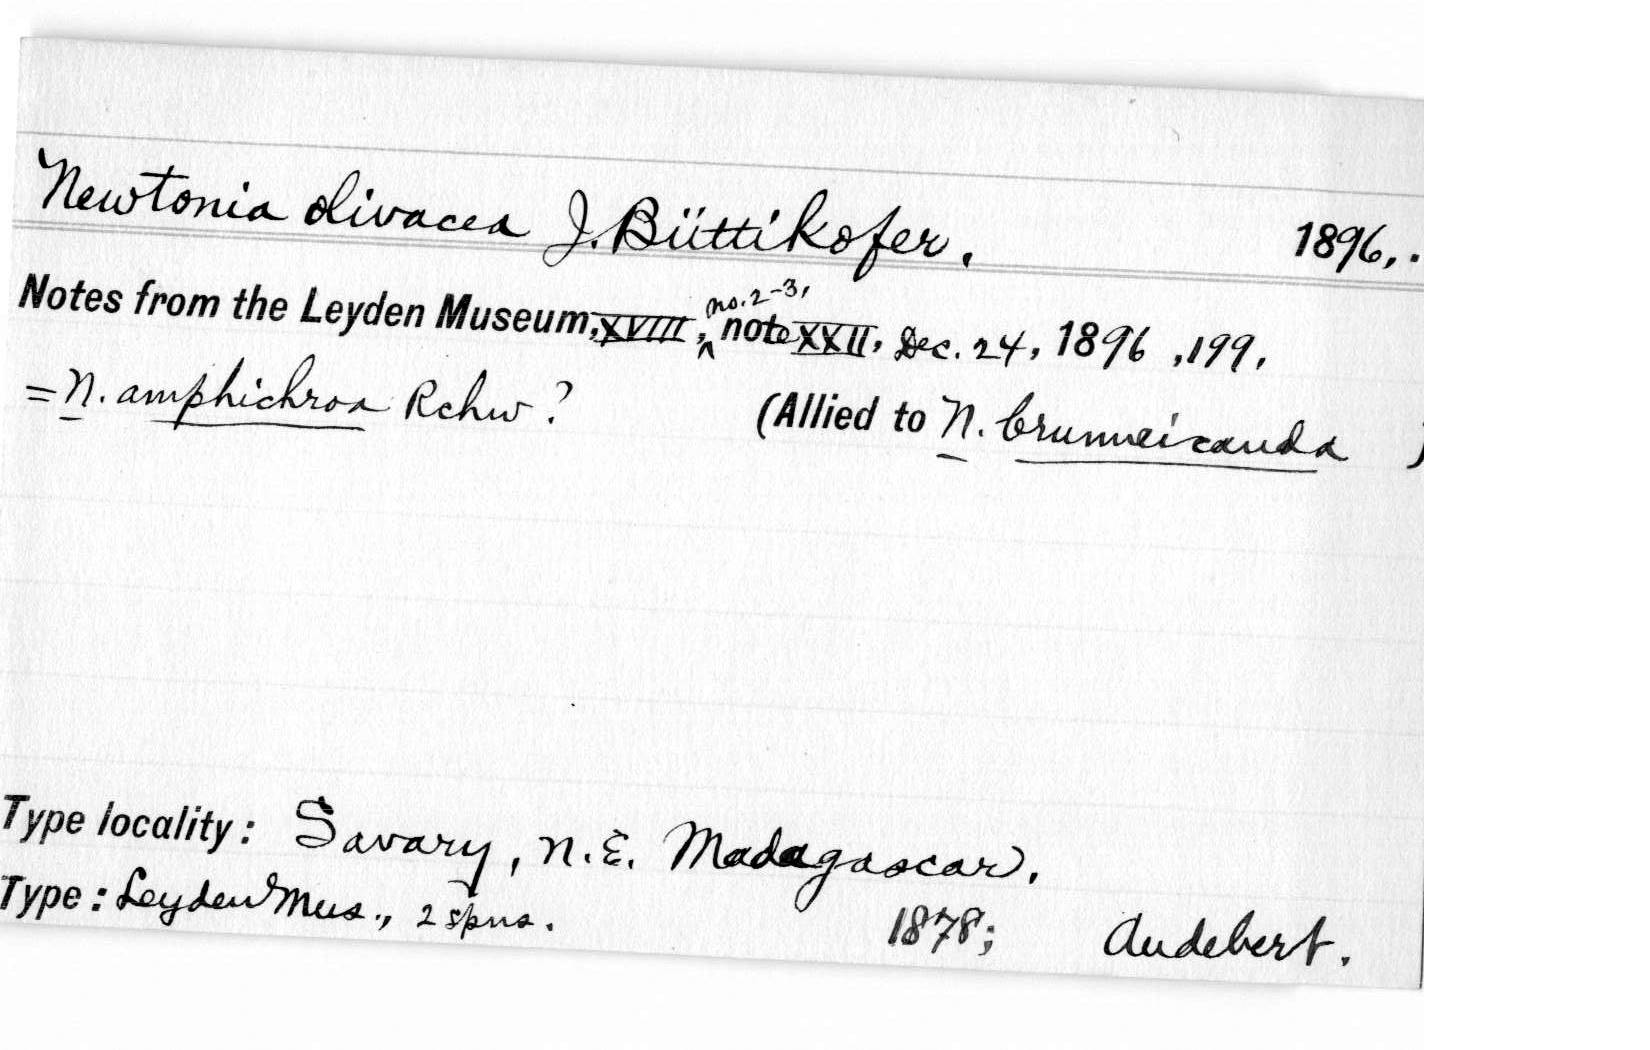 Newtonia olivacea J. Büttikofer. 1896,.
Notes from the Leyden Museum, XVIII, no. 2-3, note XXII, Dec. 24, 1896 ,199,
= N. amphichroa Rchw? (Allied to N. brunneicauda )
Type locality: Savary, N.E. Madagascar.
Type: Leyden Mus., 2 spns. 1878; Audebert.